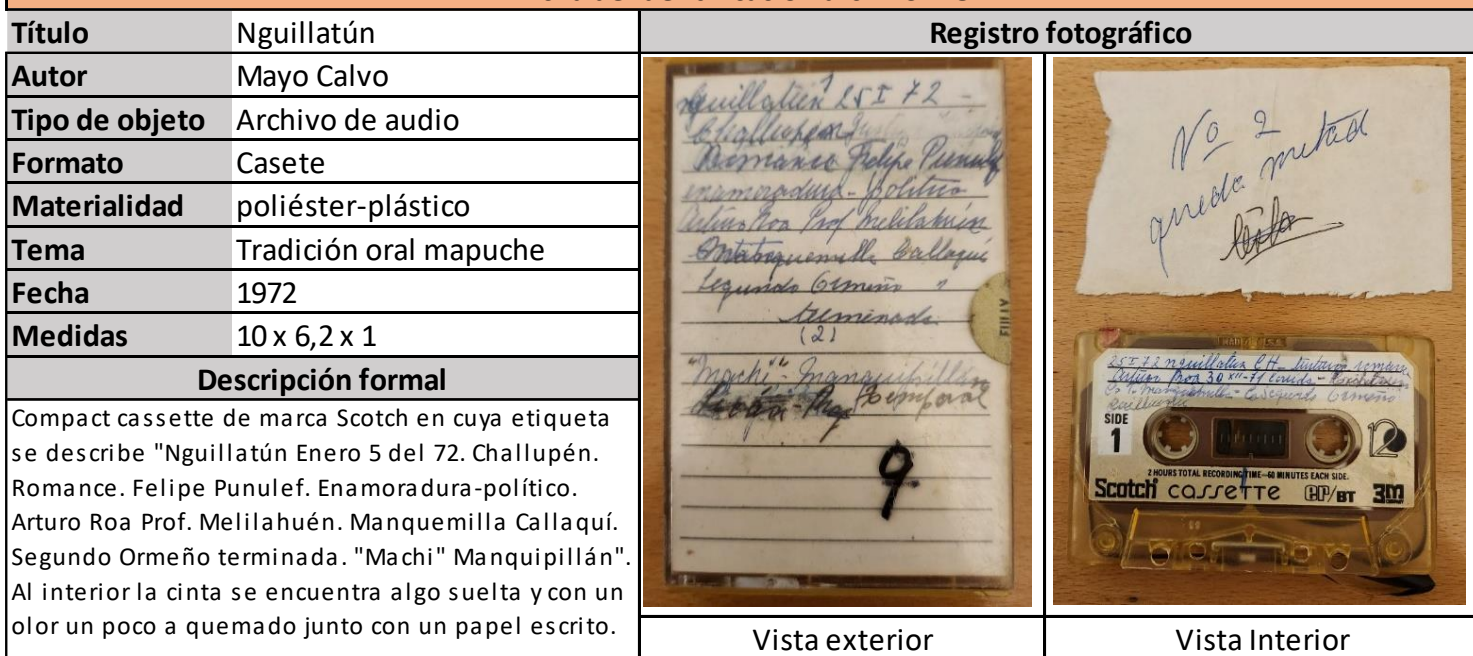 Título Nguillatún
Autor Mayo Calvo
Tipo de objeto Archivo de audio
Formato Casete
Materialidad poliéster-plástico
Tema Tradición oral mapuche
Fecha 1972
Medidas 10 x 6,2 x 1
Descripción formal
Compact cassette de marca Scotch en cuya etiqueta
se describe "Nguillatún Enero 5 del 72. Challupén.
Romance. Felipe Punulef. Enamoradura-político.
Arturo Roa Prof. Melilahuén. Manquemilla Callaquí.
Segundo Ormeño terminada. "Machi" Manquipillán".
Al interior la cinta se encuentra algo suelta y con un
olor un poco a quemado junto con un papel escrito.
Registro fotográfico
Nguillatún 25 I 72 -
Challupén
Romance Felipe Punulef
enamoradura - Político
Arturo Roa Prof Melilahuén
Manquemilla Callaquí
Segundo Ormeño
terminada
(2)
"Machi" - Manquipillán
Temporal
9
Vista exterior
Nº 2
queda mitad
lista
25 I 72 nguillatún CH
Arturo Roa 30 XII-71
Segundo Ormeño
SIDE
1
120
2 HOURS TOTAL RECORDING TIME—60 MINUTES EACH SIDE.
Scotch CASSETTE 3M
Vista Interior